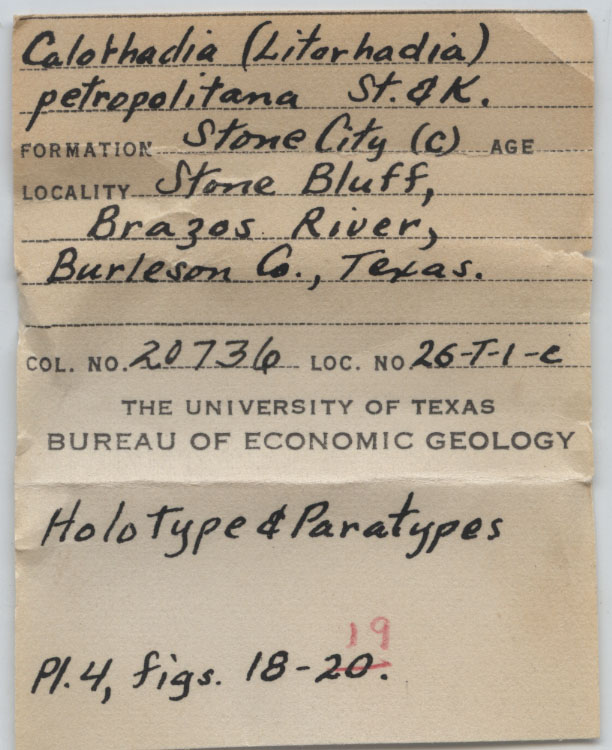 Calorhadia (Litorhadia)
petropolitana St. & K.
FORMATION Stone City (c) AGE
LOCALITY Stone Bluff,
Brazos River,
Burleson Co., Texas.
COL. NO. 20736 LOC. NO 26-T-1-c
THE UNIVERSITY OF TEXAS
BUREAU OF ECONOMIC GEOLOGY
Holotype & Paratypes
19
Pl. 4, figs. 18-20.